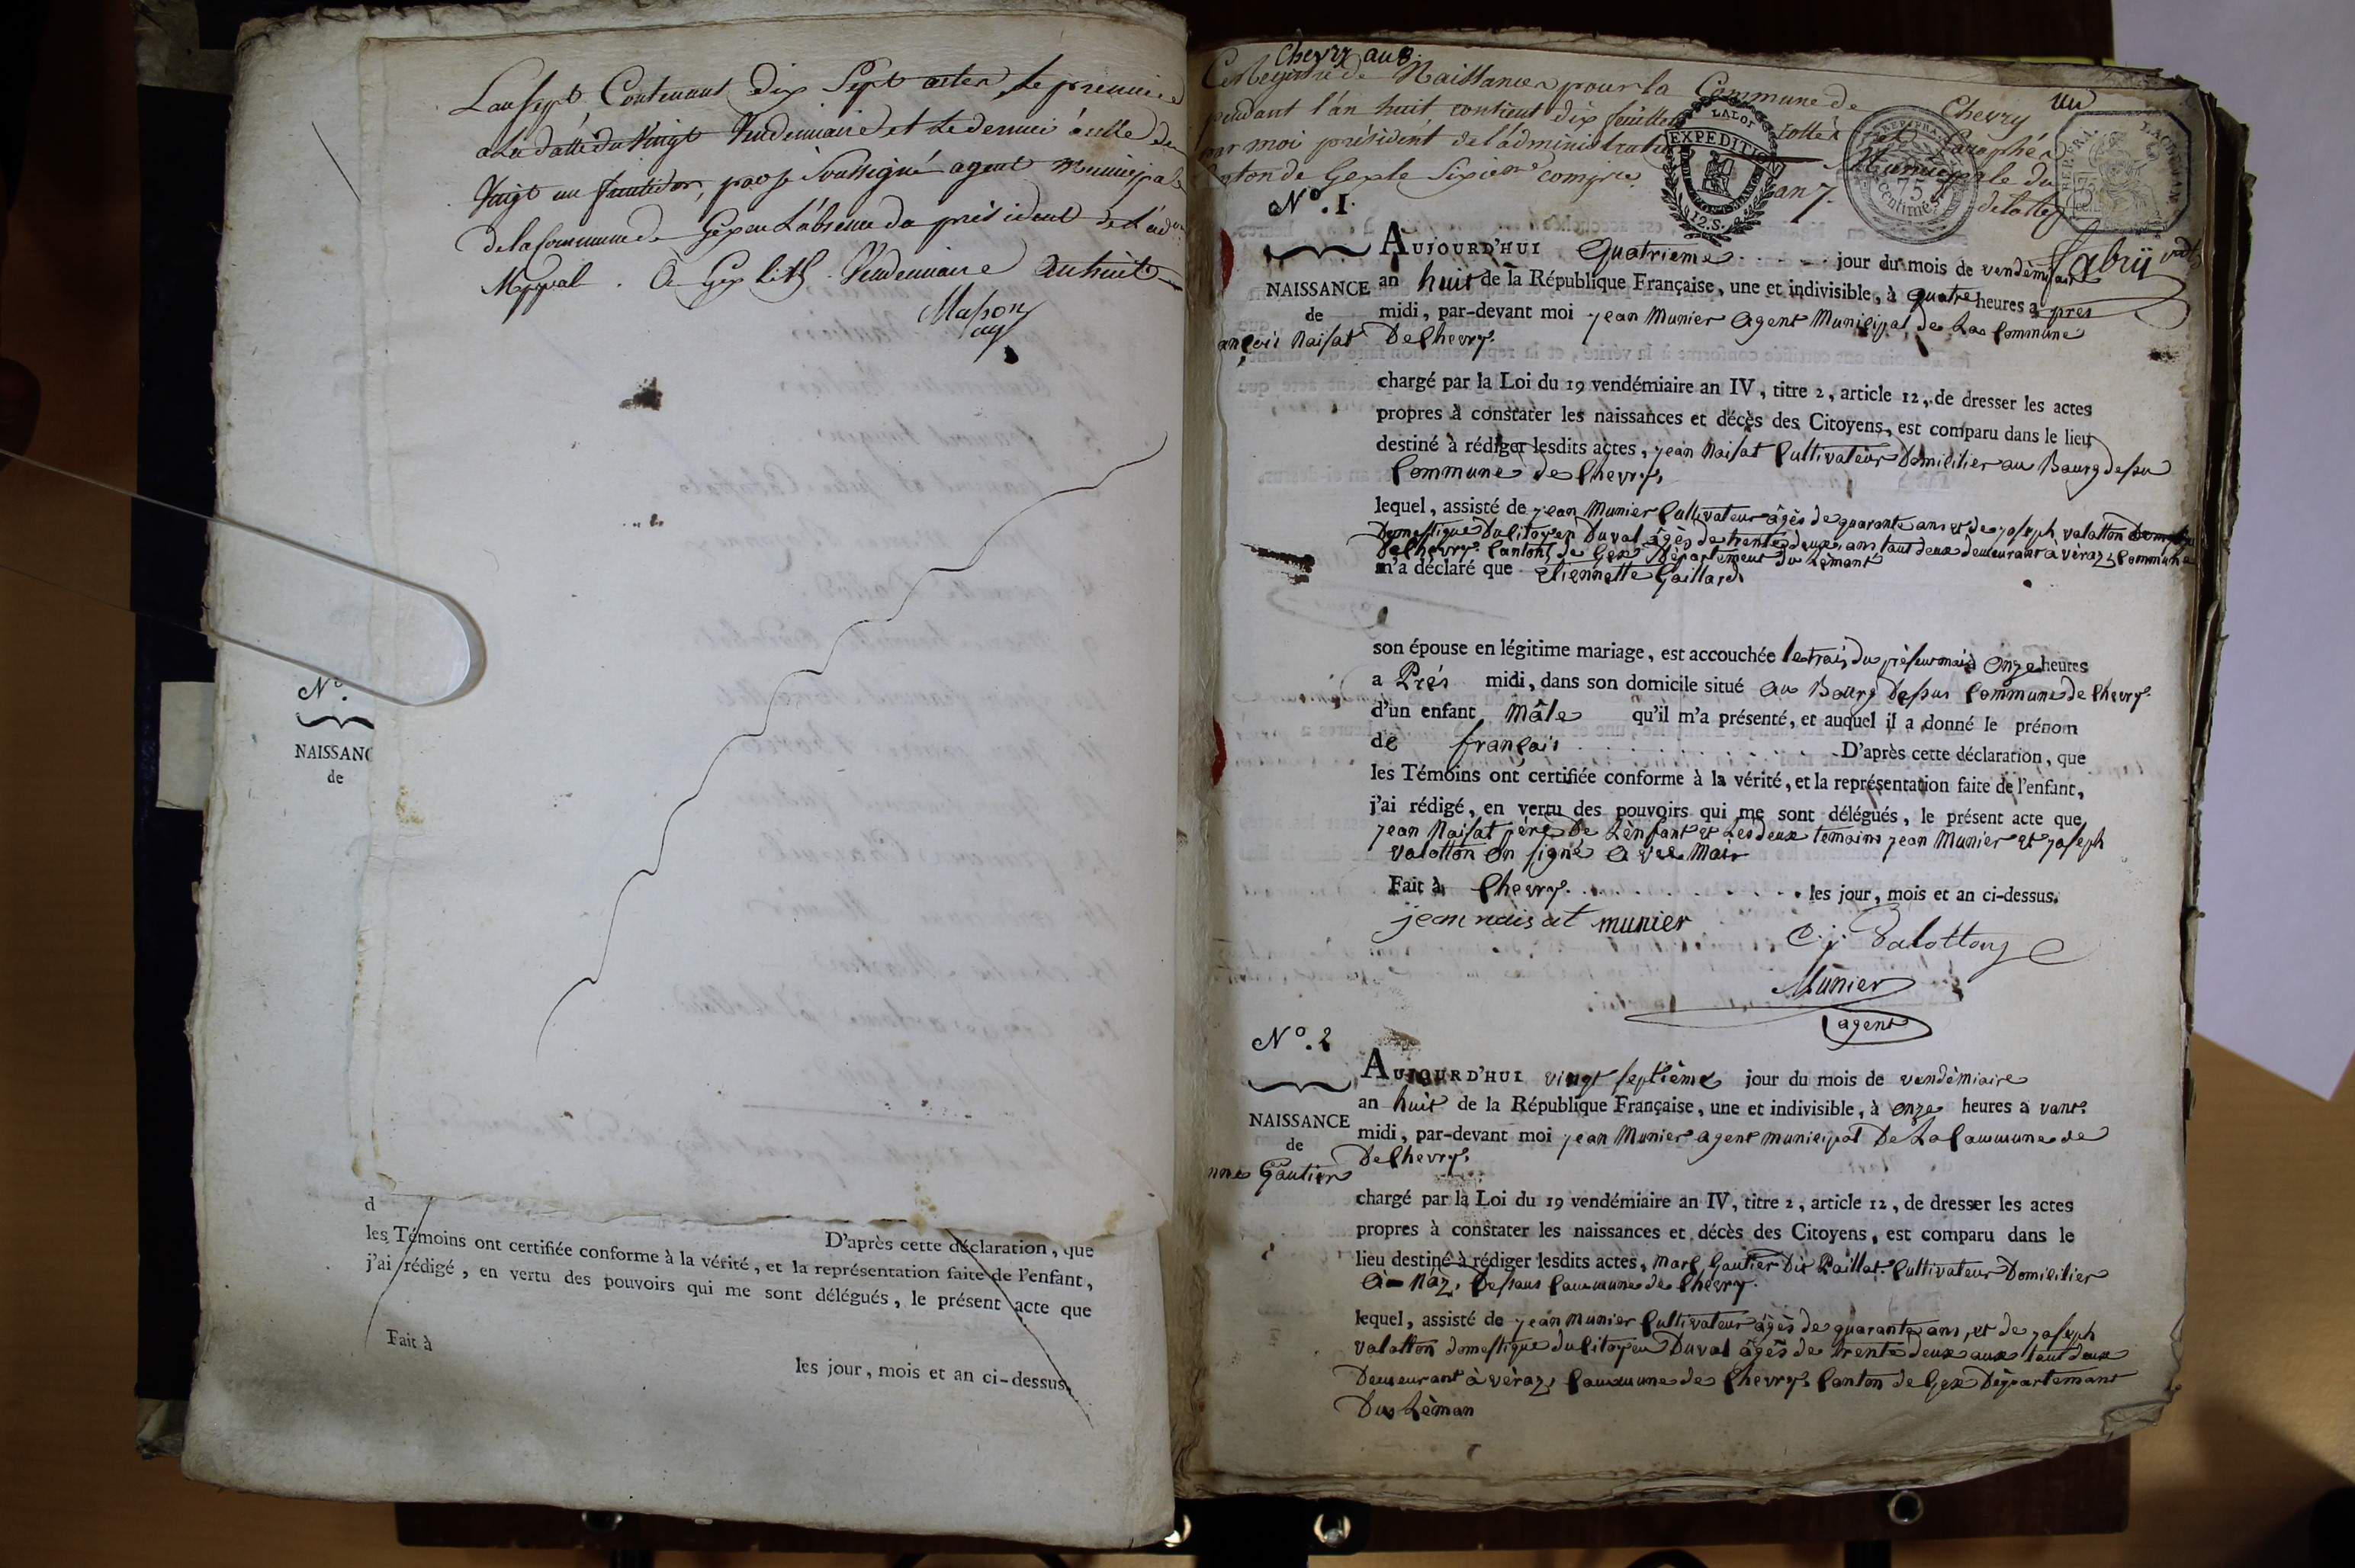 L'an sept Contenant dix Sept actes, le premier
a la datte du Vingt Vendemiaire et le dernier à celle de
Vingt un fructidor, par je soussigné agent municipal
de la Commune de Gex en l'absence du president de l'ad.on
Mppal. A Gex le Vendemiaire an huit
Masson
ag
N°.
NAISSANC
de
d
D'après cette déclaration, que
les Témoins ont certifiée conforme à la vérité, et la représentation faite de l'enfant,
j'ai rédigé, en vertu des pouvoirs qui me sont délégués, le présent acte que
Fait à
les jour, mois et an ci-dessus.
Chevry an 8.
un
Registre de Naissances pour la Commune de Chevry
pendant l'an huit, contient dix feuillets cottés et Paraphés
par moi président de l'administration Municipale du
canton de Gex le Sixieme compre. an 7.
LA LOI
EXPEDITION
12.S.
REP. FRA.
75
centimes
REP. FRA.
75
Fabry
N°. 1.
NAISSANCE
de
ançois Naisat
AUJOURD'HUI quatrieme jour du mois de vendèmiaire
an huit de la République Française, une et indivisible, à quatre heures apres
midi, par-devant moi jean Munier Agent Municipal de La Commune
De Chevry.
chargé par la Loi du 19 vendémiaire an IV, titre 2, article 12, de dresser les actes
propres à constater les naissances et décès des Citoyens, est comparu dans le lieu
destiné à rédiger lesdits actes, jean Naisat Cultivateur Domicilier au Bourg dessu
Commune de Chevry,
lequel, assisté de jean Munier Cultivateur âgès de quarante ans et de joseph valotton
Domestique Du Citoyen Duval âgès de trente deux ans tout deux demeurant à vèraz Commune
De Chevry Canton de Gex Dèpartement du Lèmant
m'a déclaré que Etiennette Gaillard
son épouse en légitime mariage, est accouchée le trois du prèseur mois à onze heures
a Prés midi, dans son domicile situé au Bourg Dessus Commune de Chevry
d'un enfant Mâle qu'il m'a présenté, et auquel il a donné le prénom
de françois D'après cette déclaration, que
les Témoins ont certifiée conforme à la vérité, et la représentation faite de l'enfant,
j'ai rédigé, en vertu des pouvoirs qui me sont délégués, le présent acte que
jean Naisat père De L'enfant et Les deux temoins jean Munier et joseph
valotton on signé avec Moir
Fait à Chevry. les jour, mois et an ci-dessus.
jean naisat munier
C. j. Valottong
Munier
agent
N°. 2
NAISSANCE
de
Gautier
AUJOURD'HUI vingt septième jour du mois de vendèmiaire
an huit de la République Française, une et indivisible, à onze heures a vant.
midi, par-devant moi jean Munier agent municipal De La Commune de
De Chevry,
chargé par la Loi du 19 vendémiaire an IV, titre 2, article 12, de dresser les actes
propres à constater les naissances et décès des Citoyens, est comparu dans le
lieu destiné à rédiger lesdits actes, Marc Gautier Dit Paillat Cultivateur Domicilier
à Naz, Dessous Commune de Chevry.
lequel, assisté de jean Munier Cultivateur âgès de quarante ans, et de joseph
valotton domestique du Citoyen Duval âgès de trente deux ans tout deux
Demeurant à vèraz, Commune de Chevry Canton de Gex Dèpartemant
Du Lèman